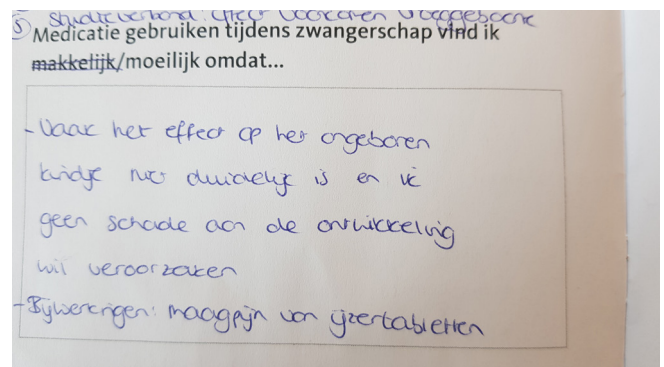 5) Studieverband: effect voorkomen vroeggeboorte
Medicatie gebruiken tijdens zwangerschap vind ik
makkelijk/moeilijk omdat...
- Vaak het effect op het ongeboren
kindje niet duidelijk is en ik
geen schade aan de ontwikkeling
wil veroorzaken
- Bijwerkingen: maagpijn van ijzertabletten